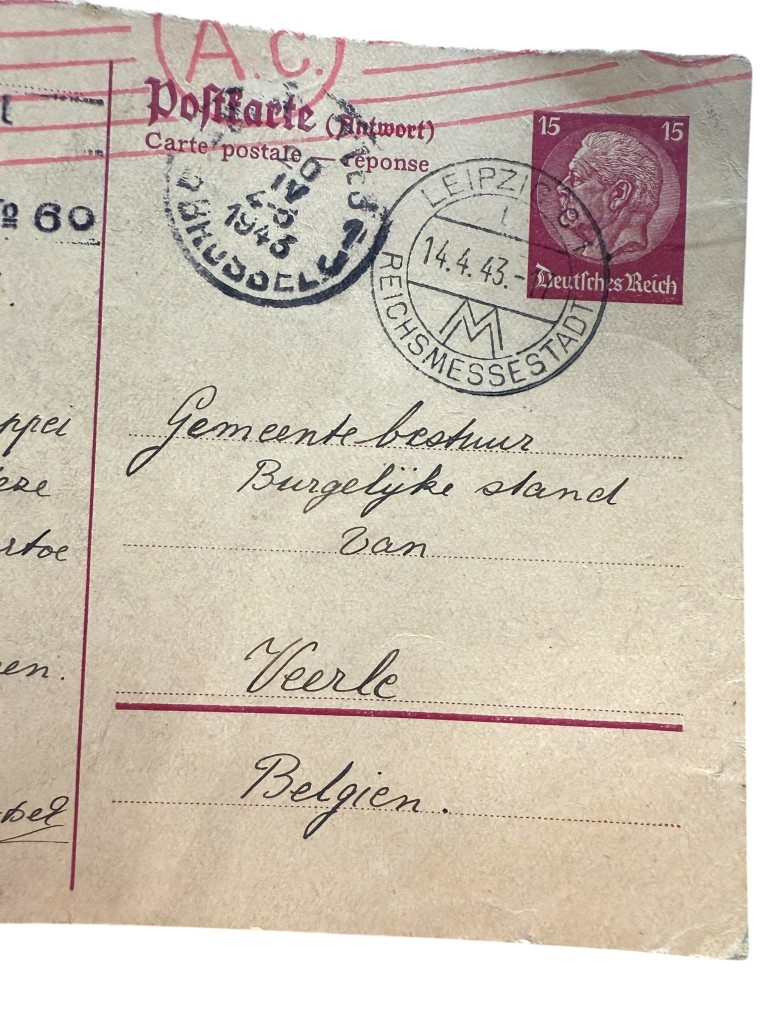 (A.C.)
Postkarte (Antwort)
Carte postale — réponse
15 15
Deutsches Reich
LEIPZIG
14.4.43.-
REICHSMESSESTADT
M
IV
1943
BRUSSEL
1
№ 60
Gemeentebestuur
Burgelijke stand
van
Veerle
Belgien.
ppei
eze
rtoe
en.